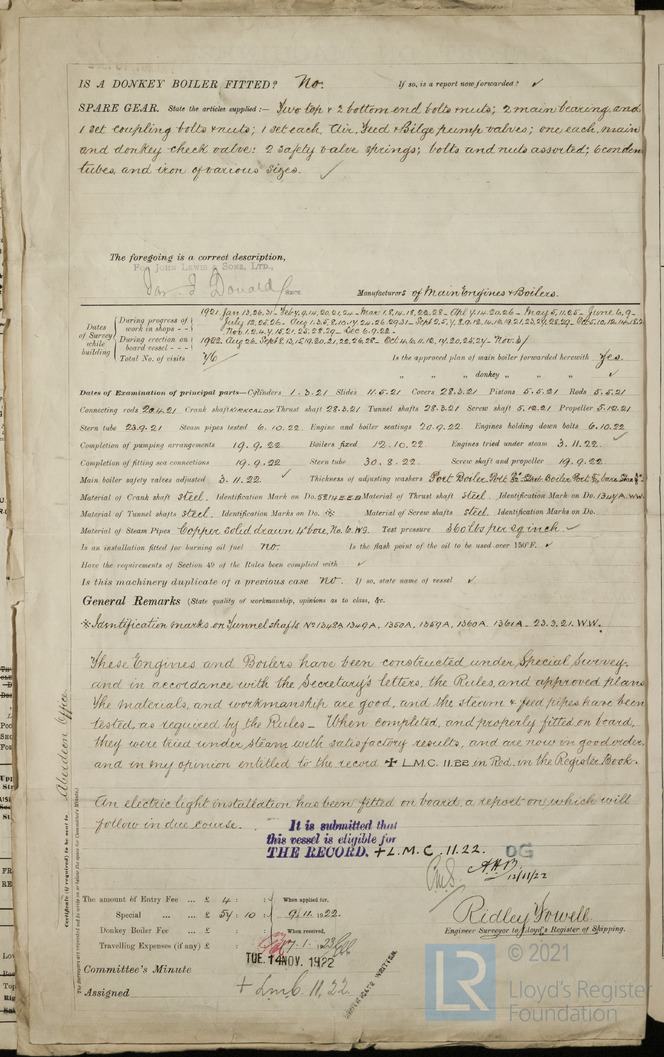 IS A DONKEY BOILER FITTED? No. If so, is a report now forwarded? ✓
SPARE GEAR. State the articles supplied:— Two top & 2 bottom end bolts & nuts; 2 main bearing and
1 set coupling bolts & nuts; 1 set each Air, Feed & Bilge pump valves; one each, main
and donkey check valve: 2 safety valve springs; bolts and nuts assorted; 6 conden
tubes, and iron of various sizes. ✓
The foregoing is a correct description,
For John Lewis & Sons, Ltd.,
Donald
Manufacturers of Main Engines & Boilers.
Dates of Survey while building
During progress of work in shops - -
1921. Jan 13, 26, 31
During erection on board vessel - - -
1922 Aug 26. Sept
Total No. of visits 76
Is the approved plan of main boiler forwarded herewith Yes.
" " " donkey " " " ✓
Dates of Examination of principal parts—Cylinders 1.3.21 Slides 11.5.21 Covers 28.3.21 Pistons 5.5.21 Rods 5.5.21
Connecting rods 20.4.21 Crank shaft KIRKCALDY Thrust shaft 28.3.21 Tunnel shafts 28.3.21 Screw shaft 5.12.21 Propeller 5.12.21
Stern tube 23.9.21 Steam pipes tested 6.10.22 Engine and boiler seatings 20.9.22 Engines holding down bolts 6.10.22
Completion of pumping arrangements 19.9.22 Boilers fixed 12.10.22 Engines tried under steam 3.11.22
Completion of fitting sea connections 19.9.22 Stern tube 30.8.22 Screw shaft and propeller 19.9.22
Main boiler safety valves adjusted 3.11.22 ✓ Thickness of adjusting washers Port Boiler
Material of Crank shaft Steel. Identification Mark on Do. Material of Thrust shaft Steel. Identification Mark on Do. 1347A. W.W.
Material of Tunnel shafts Steel. Identification Marks on Do. ※ Material of Screw shafts Steel. Identification Marks on Do.
Material of Steam Pipes Copper solid drawn 4" bore, No. 6 W.G. Test pressure 360 lbs per sq inch ✓
Is an installation fitted for burning oil fuel No. Is the flash point of the oil to be used over 150°F. ✓
Have the requirements of Section 49 of the Rules been complied with ✓
Is this machinery duplicate of a previous case No. If so, state name of vessel ✓
General Remarks (State quality of workmanship, opinions as to class, &c.
※ Identification marks on Tunnel shafts Nos 1348A, 1349A, 1350A, 1359A, 1360A, 1361A. 23.3.21. W.W.
These Engines and Boilers have been constructed under Special Survey,
and in accordance with the Secretary's letters, the Rules, and approved plans
The materials, and workmanship are good, and the steam & feed pipes have been
tested, as required by the Rules. When completed, and properly fitted on board,
they were tried under steam with satisfactory results, and are now in good order,
and in my opinion entitled to the record ✠ L.M.C. 11.22 in Red. in the Register Book.
An electric light installation has been fitted on board, a report on which will
follow in due course.
It is submitted that
this vessel is eligible for
THE RECORD. + L.M.C. 11.22. OG
12/11/22
The amount of Entry Fee ... £ 4 : : When applied for,
Special ... ... £ 54 : 10 : 9.11.1922.
Donkey Boiler Fee ... £ : : When received,
Travelling Expenses (if any) £ : :
Ridley Howell.
Engineer Surveyor to Lloyd's Register of Shipping.
Committee's Minute TUE. 14 NOV. 1922
Assigned + L.M.C. 11.22
CERTIFICATE WRITTEN
Aberdeen Office.
Certificate (if required) to be sent to
© 2021
Lloyd's Register
Foundation
LR